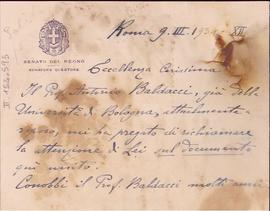 Roma 9. III. 1934 - XII
SENATO DEL REGNO
SENATORE QUESTORE
Eccellenza Carissima
Il Prof. Antonio Baldacci, già della
Università di Bologna, attualmente
mi ha pregato di richiamare
la attenzione di Lei sul documento
qui unito.
Conobbi il Prof. Baldacci molti anni